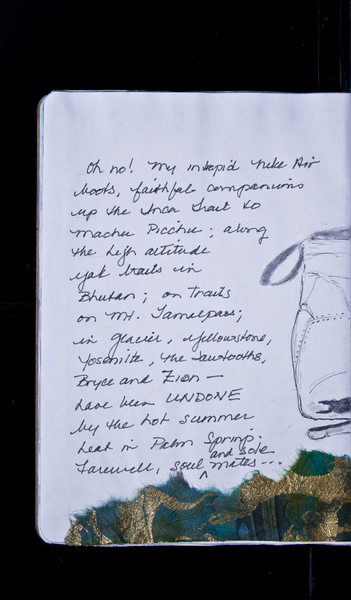 Oh no! My intrepid Nike Air
boots, faithful companions
up the Inca Trail to
Machu Picchu; along
the high altitude
yak trails in
Bhutan; on Trails
on Mt. Tamalpais;
in Glacier, Yellowstone,
Yosemite, the Sawtooths,
Bryce and Zion —
have been UNDONE
by the hot summer
heat in Palm Springs.
Farewell, soul and sole mates...